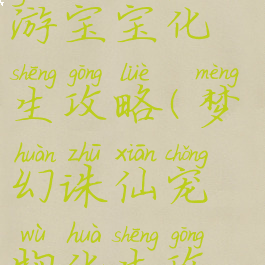 游宝宝化
shēng gōng lüè mèng
生攻略(梦
huàn zhū xiān chǒng
幻诛仙宠
wù huà shēng gōng
物化生攻